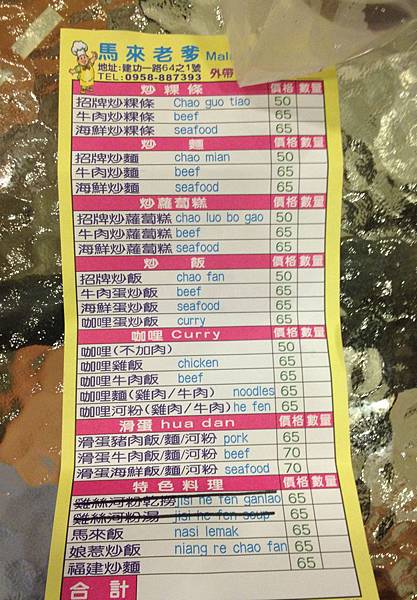 馬來老爹 Mala
地址:建功一路64之1號
TEL:0958-887393 外帶
炒粿條 價格 數量
招牌炒粿條 Chao guo tiao 50
牛肉炒粿條 beef 65
海鮮炒粿條 seafood 65
炒麵 價格 數量
招牌炒麵 chao mian 50
牛肉炒麵 beef 65
海鮮炒麵 seafood 65
炒蘿蔔糕 價格 數量
招牌炒蘿蔔糕 chao luo bo gao 50
牛肉炒蘿蔔糕 beef 65
海鮮炒蘿蔔糕 seafood 65
炒飯 價格 數量
招牌炒飯 chao fan 50
牛肉蛋炒飯 beef 65
海鮮蛋炒飯 seafood 65
咖哩蛋炒飯 curry 65
咖哩 Curry 價格 數量
咖哩(不加肉) 50
咖哩雞飯 chicken 65
咖哩牛肉飯 beef 65
咖哩麵(雞肉/牛肉) noodles 65
咖哩河粉(雞肉/牛肉) he fen 65
滑蛋 hua dan 價格 數量
滑蛋豬肉飯/麵/河粉 pork 65
滑蛋牛肉飯/麵/河粉 beef 70
滑蛋海鮮飯/麵/河粉 seafood 70
特色料理 價格 數量
雞絲河粉乾撈 jisi he fen ganlao 65
雞絲河粉湯 jisi he fen soup 65
馬來飯 nasi lemak 65
娘惹炒飯 niang re chao fan 65
福建炒麵 65
合計